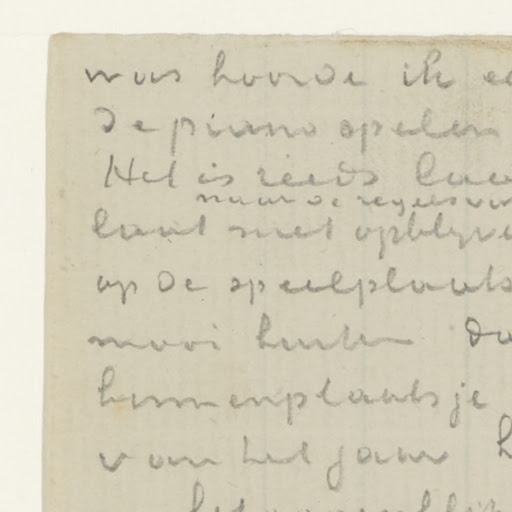 was hoorde ik
de piano spelen
Het is reeds
naar de regels van
laat met opblyven
op de speelplaats
mooi buiten
binnenplaatsje
van het jaar